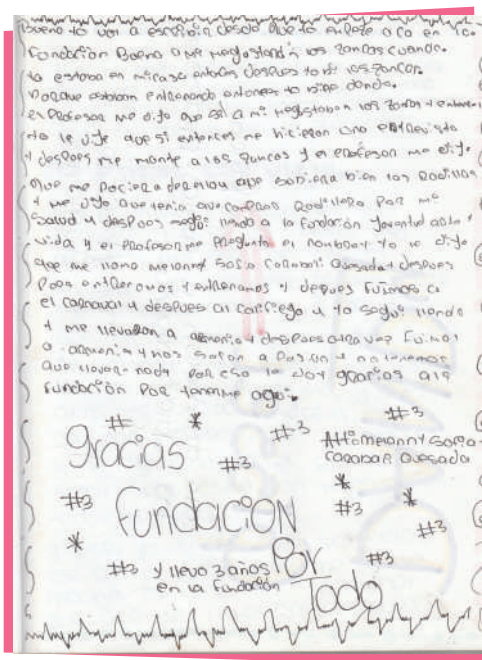 Bueno yo voy a escribir desde que yo enpeze aca en la
fundación Bueno a mi me gustan los zancos cuando
yo estaba en mi casa entonces despues yo vi los zancos
Porque estaban entrenando entonces yo vine donde
el Profesor me dijo que si a mi me gustaban los zancos y entonces
yo le dije que si entonces me hicieron una entrevista
y despues me monte a los zancos y el Profesor me dijo
que me Para que subiera bien las Rodillas
y me dijo que tenia que comprar Rodillera Por mi
salud y despues segui llendo a la fundación Joventud arte y
vida y el Profesor me Pregunto el nombre y yo le dije
que me llamo melanny sofia carabali Quesada y despues
Para entrenamos y entrenamos y depues fuimos a
el carnaval y despues al cariSego y yo segui llendo
y me llevaron a armenia y despues otra vez fuimos
a armenia y nos salon a Pason y no tenemos
que llevar nada Por eso le doy gracias a la
fundación Por tenerme aqui
# * #3 #3
gracias #3 Att: melanny sofia
carabali Quesada
#3 fundacion #3 * *
* #3
#3 y llevo 3 años Por #3
en la fundación Todo